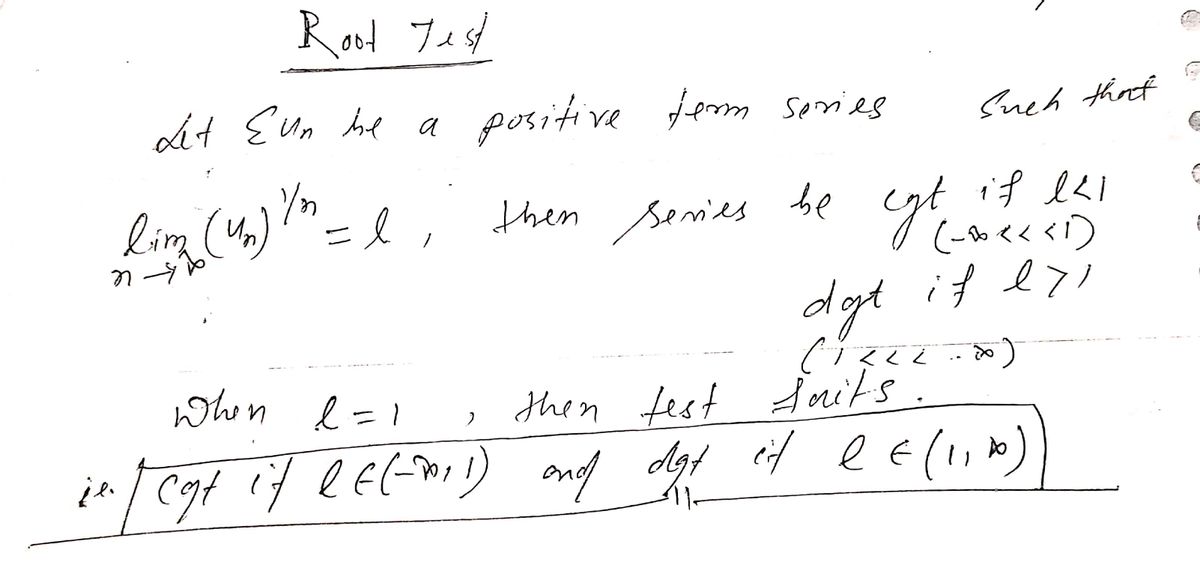 Root Test
Let Σun be a positive term series such that
lim n→∞ (un)^1/n = l , then series be cgt if l<1
(-∞ << <1)
dgt if l>1
(1 <<< .. ∞)
When l = 1 , then test fails.
i.e. cgt if l ∈ (-∞, 1) and dgt if l ∈ (1, ∞)